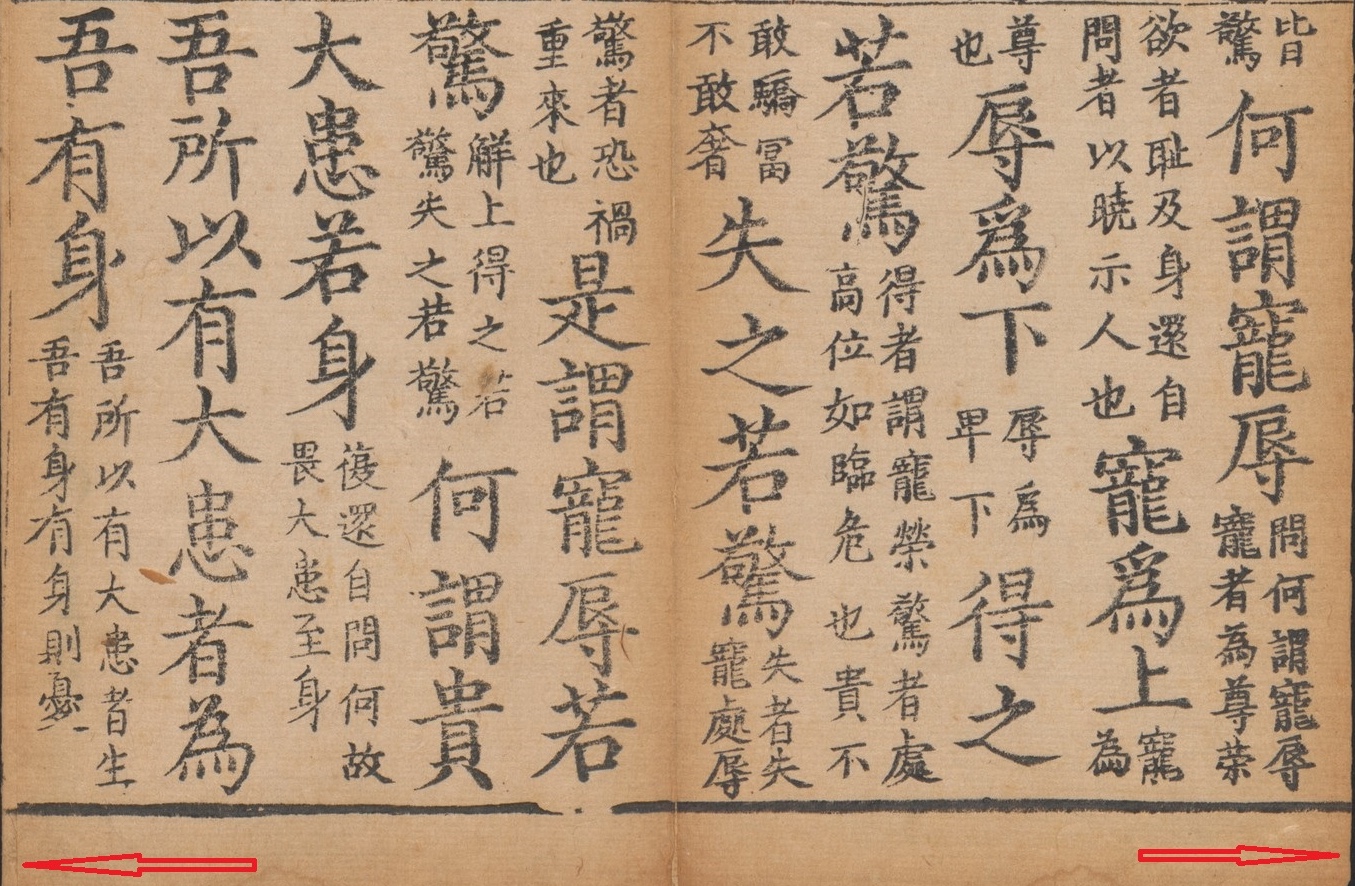 皆驚何謂寵辱問何謂寵辱寵者為尊荣
欲者耻及身還自問者以曉示人也寵爲上寵為
尊也辱爲下辱為卑下得之
若驚得者謂寵榮驚者處高位如臨危也貴不
敢驕冨不敢奢失之若驚失者失寵處辱
驚者恐禍重來也是謂寵辱若
驚解上得之若驚失之若驚何謂貴
大患若身復還自問何故畏大患至身
吾所以有大患者為
吾有身吾所以有大患者生吾有身有身則憂